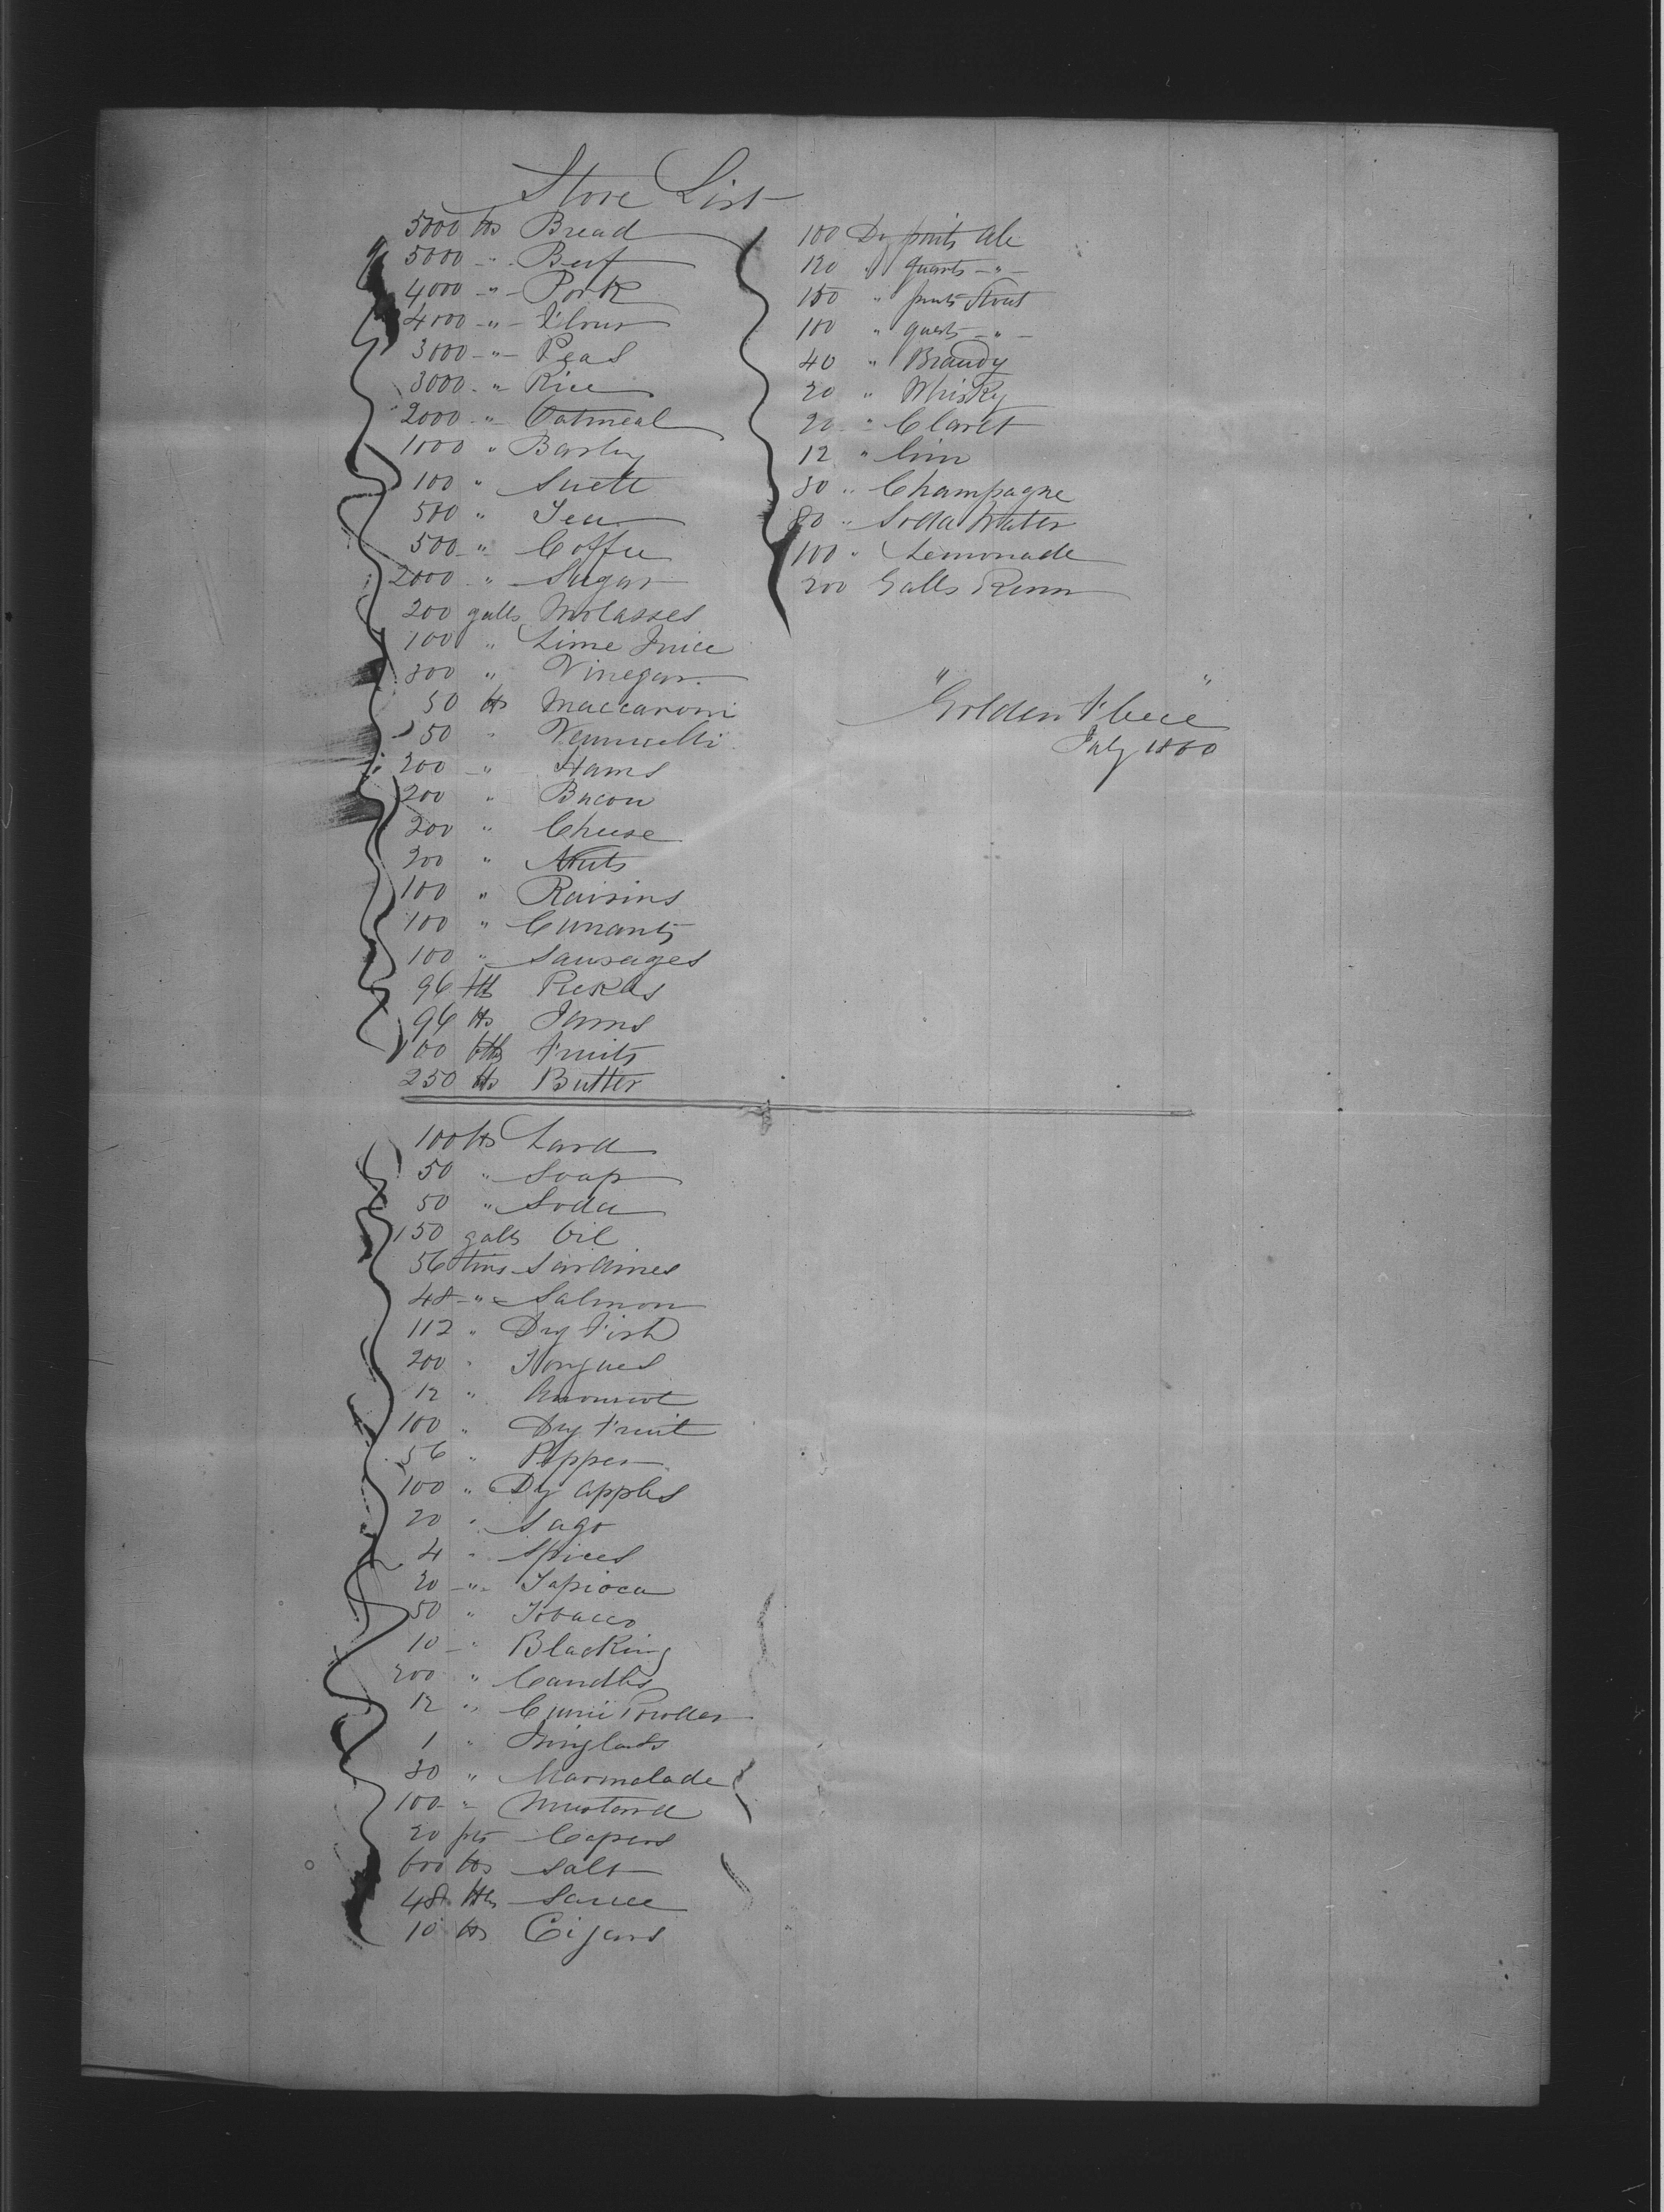 Store List
5000 lbs Bread
5000 -"- Beef
4000 -"- Pork
4000 -"- Flour
3000 -"- Peas
3000 -"- Rice
2000 -"- Oatmeal
1000 " Barley
100 " Suett
500 " Tea
500 -" Coffee
2000 -" Sugar
200 galls Molasses
100 " Lime Juice
300 " Vinegar
50 lbs Maccaroni
50 " Vermicelli
200 -" Hams
200 " Bacon
200 " Cheese
200 " Nuts
100 " Raisins
100 " Currants
100 " Sausages
96 btls Pickles
96 lbs Jams
100 btls Fruits
250 lbs Butter
100 lbs Lard
50 " Soap
50 " Soda
150 galls Oil
56 tins Sardines
48 -"- Salmon
112 " Dry Fish
200 " Tongues
12 " Arrowroot
100 " Dry Fruit
56 " Pepper
100 " Dry apples
20 " Sago
4 " Spices
20 -"- Tapioca
50 " Tobacco
10 -" Blacking
200 " Candles
12 " Currie Powder
1 " Isinglass
30 " Marmalade
100 -" Mustard
20 pts Capers
600 lbs Salt
48 btls Sauce
10 lbs Cigars
100 Dz pints Ale
120 " quarts -"-
150 " pints Stout
100 " quarts -"-
40 " Brandy
20 " Whisky
20 " Claret
12 " Gin
30 " Champagne
80 " Soda Water
100 " Lemonade
200 Galls Rum
"Golden Fleece"
July 1860